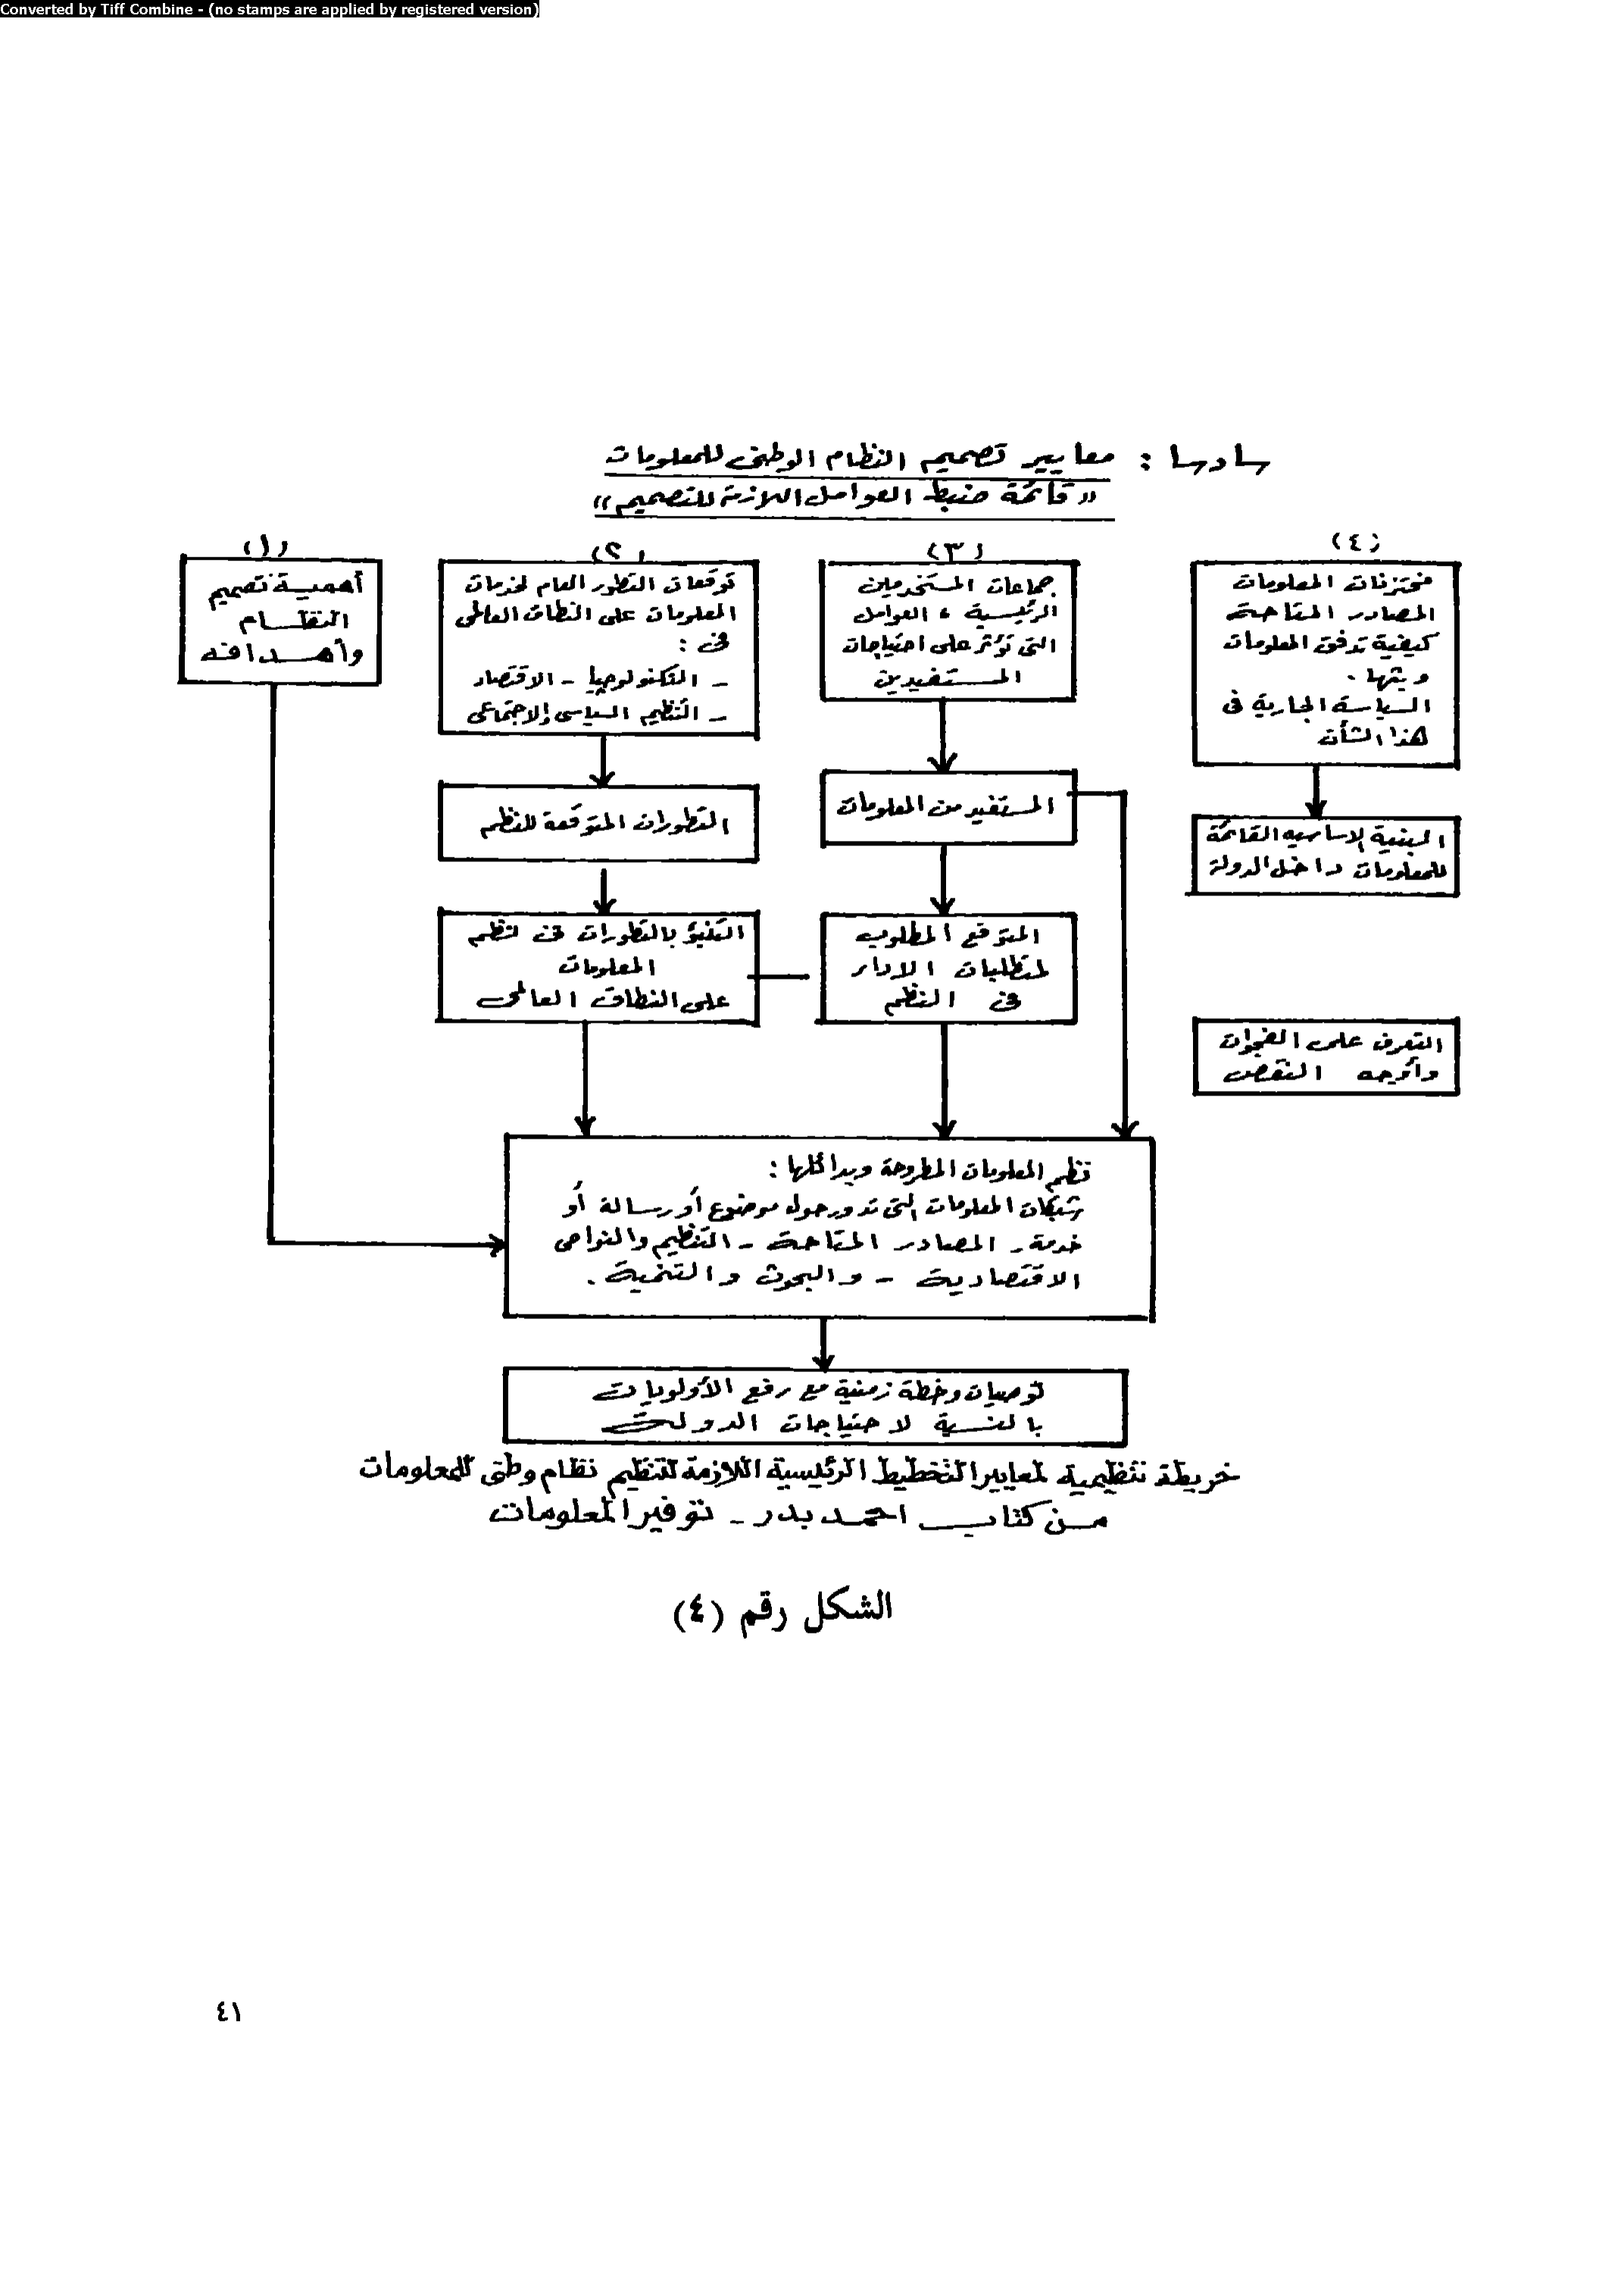 Converted by Tiff Combine - (no stamps are applied by registered version)
سادسا : معايير تصميم النظام الوطنى للمعلومات
« قائمة ضبط العوامل اللازمة للتصميم »
(١)
أهمية تصميم
النظام
وأهدافه
(٢)
توقعات التطور العام لخدمات
المعلومات على النطاق العالمى
فى :
- التكنولوجيا - الاقتصاد
- التنظيم السياسى والاجتماعى
التطورات المتوقعة للنظم
التنبؤ بالتطورات فى نظم
المعلومات
على النطاق العالمى
(٣)
جماعات المستخدمين
الرئيسية ، العوامل
التى تؤثر على احتياجات
المستفيدين
المستفيد من المعلومات
المتوقع المطلوب
لمتطلبات الاداء
فى النظم
(٤)
مختزنات المعلومات
المصادر المتاحة
كيفية تدفق المعلومات
وبثها .
السياسة الجارية فى
هذا الشأن
البنية الاساسيه القائمة
للمعلومات داخل الدولة
التعرف على الفجوات
وأوجه النقص
نظم المعلومات المطروحة وبدائلها :
شبكات المعلومات التى تدور حول موضوع أو رسالة أو
خدمة - المصادر المتاحة - التنظيم والنواحى
الاقتصادية - والبحوث والتنمية .
توصيات وخطة زمنية مع رفع الأولويات
بالنسبة لاحتياجات الدولة
خريطة تنظيمية لمعايير التخطيط الرئيسية اللازمة لتنظيم نظام وطنى للمعلومات
من كتاب احمد بدر - توفير المعلومات
الشكل رقم (٤)
٤١